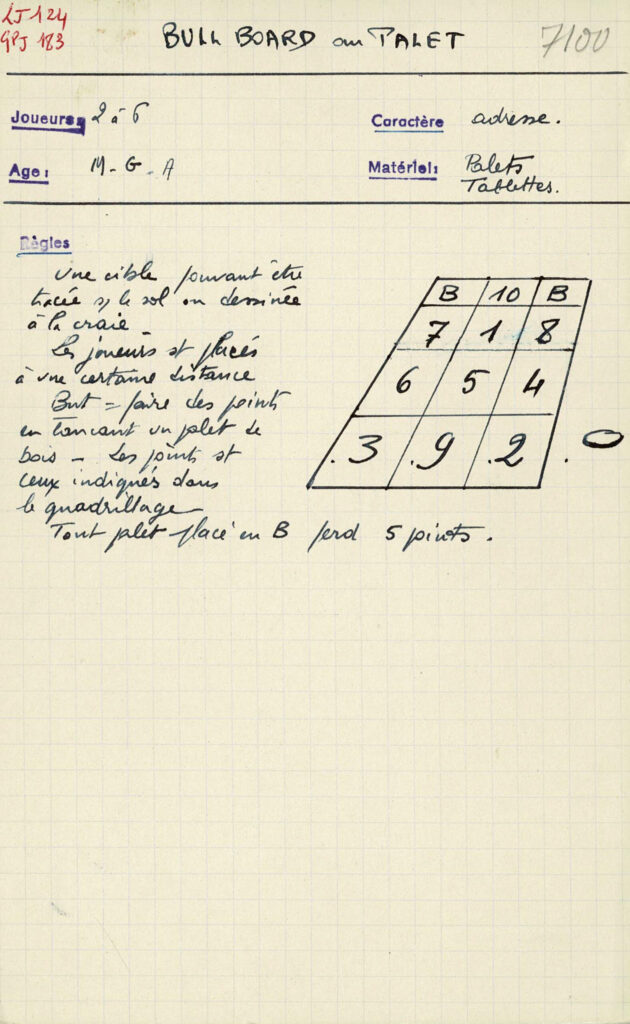 LJ 124
GPJ 183
BULL BOARD ou PALET
7100
Joueurs: 2 à 6
Caractère adresse.
Age: M - G - A
Matériel: Palets
Tablettes.
Règles
Une cible pouvant être
tracée s/ le sol ou dessinée
à la craie -
Les joueurs st placés
à une certaine distance
But = faire des points
en lancant un palet de
bois - Les points st
ceux indiqués dans
le quadrillage
Tout palet placé en B perd 5 points.
B 10 B
7 1 8
6 5 4
. 3 . 9 . 2 .